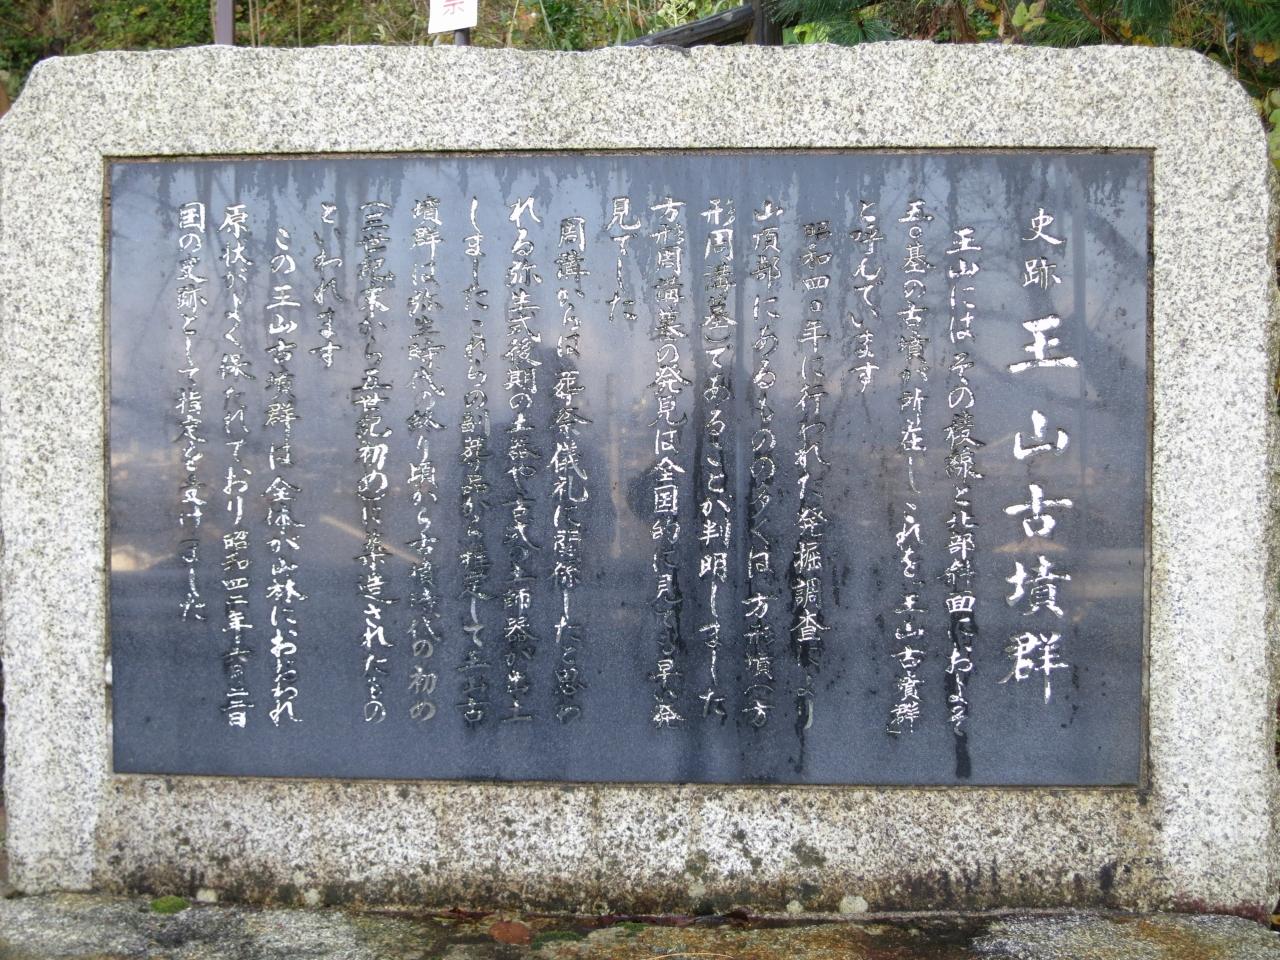 史跡 王山古墳群
王山にはその稜線と北部斜面におよそ
五〇基の古墳が所在しこれを「王山古墳群」
と呼んでいます
昭和四〇年に行われた発掘調査により
山頂部にあるものの多くは方形墳(方
形周溝墓)であることが判明しました
方形周溝墓の発見は全国的に見ても早い発
見でした
周溝からは葬祭儀礼に関係したと思わ
れる弥生式後期の土器や古式の土師器が出土
しました これらの副葬品から推定して王山古
墳群は弥生時代の終り頃から古墳時代の初め
(三世紀末から五世紀初め)に築造されたもの
といわれます
この王山古墳群は全体が山林におおわれ
原状がよく保たれており昭和四一年六月二一日
国の史跡として指定を受けました
禁